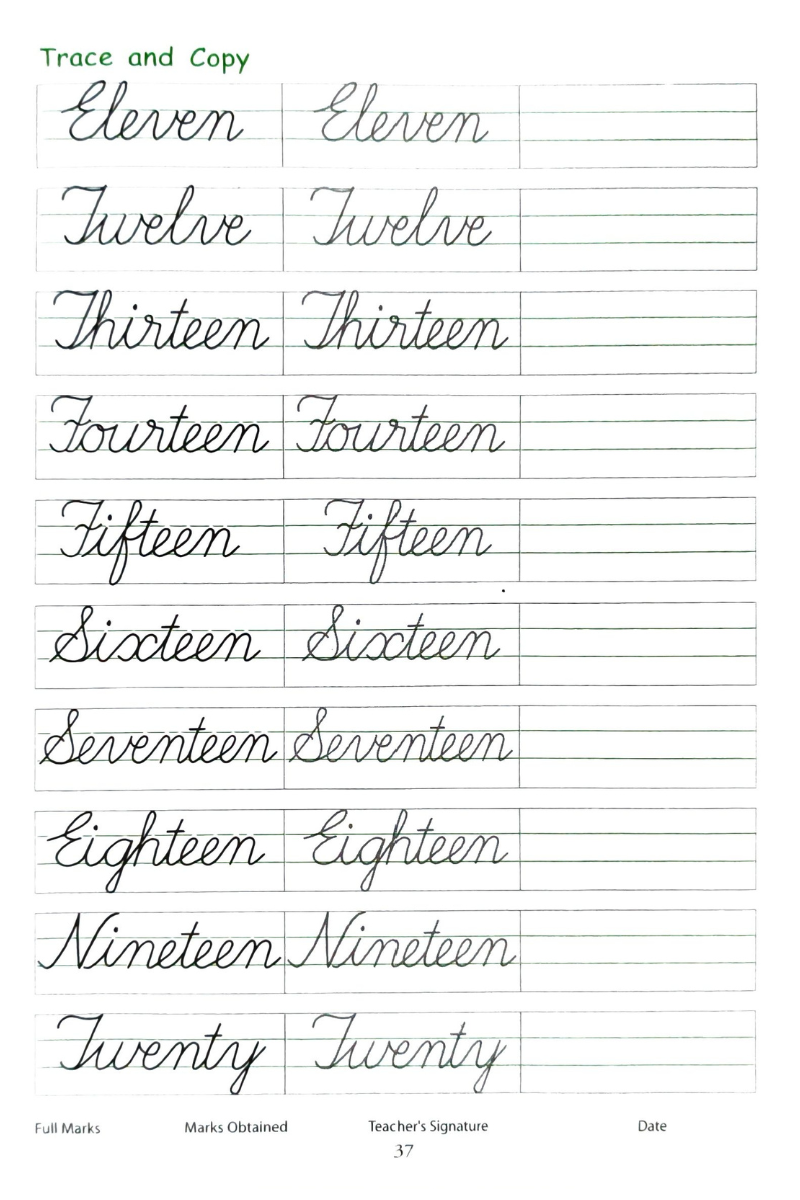 Trace and Copy
Eleven Eleven
Twelve Twelve
Thirteen Thirteen
Fourteen Fourteen
Fifteen Fifteen
Sixteen Sixteen
Seventeen Seventeen
Eighteen Eighteen
Nineteen Nineteen
Twenty Twenty
Full Marks Marks Obtained Teacher's Signature Date
37